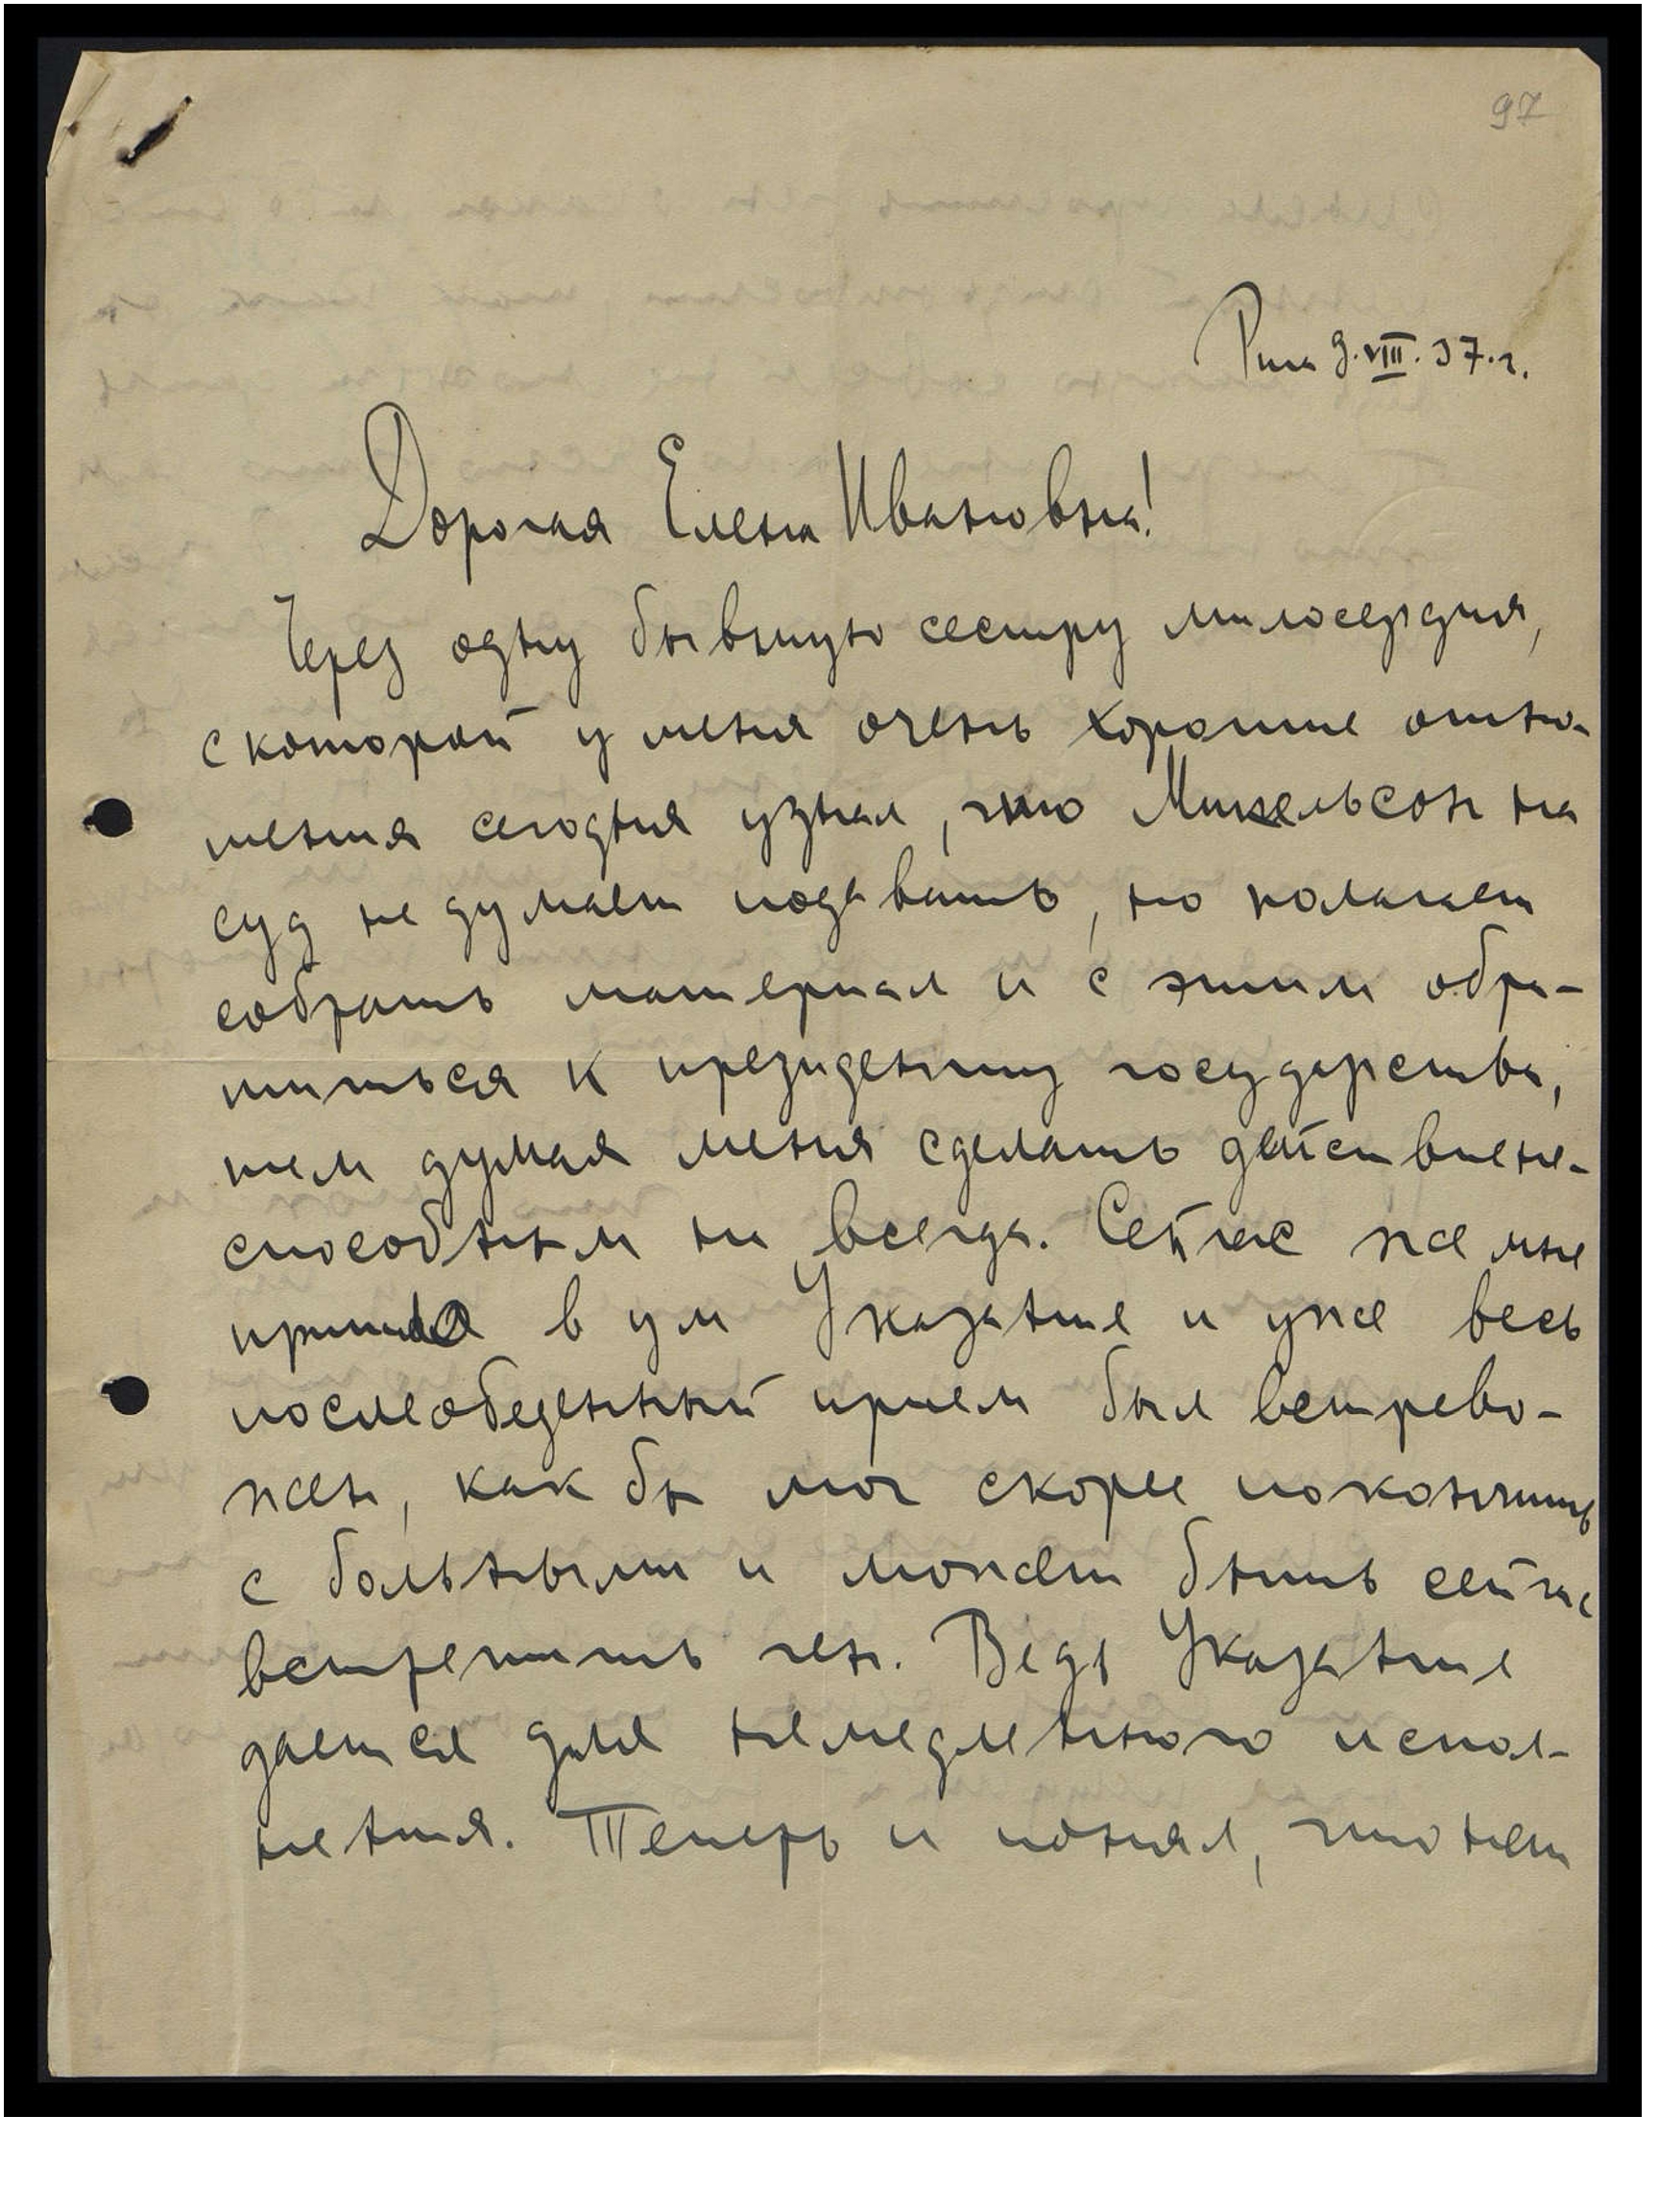 97
Рига 9.VIII.37.г.
Дорогая Елена Ивановна!
Через одну бывшую сестру милосердия,
с которой у меня очень хорошие отно-
шения сегодня узнал, что Микельсон на
суд не думает подавать, но полагает
собрать материал и с этим обра-
титься к президенту государства,
тем думая меня сделать действене-
способным на всегда. Сейчас же мне
пришло в ум Указание и уже весь
послеобеденный прием был встрево-
жен, как бы мог скорее покончить
с больными и может быть сейчас
встретить ген. Ведь Указание
дается для немедленного испол-
нения. Теперь и понял, что нет